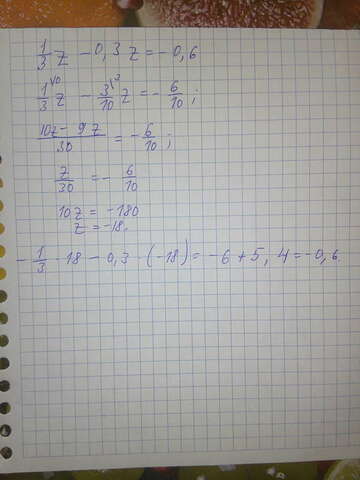 1/3 z - 0,3 z = -0,6
1\10/3 z - 3\3/10 z = - 6/10 ;
10z - 9z / 30 = - 6/10 ;
z/30 = - 6/10
10z = -180
z = -18.
- 1/3 · 18 - 0,3 · (-18) = -6 + 5,4 = -0,6.